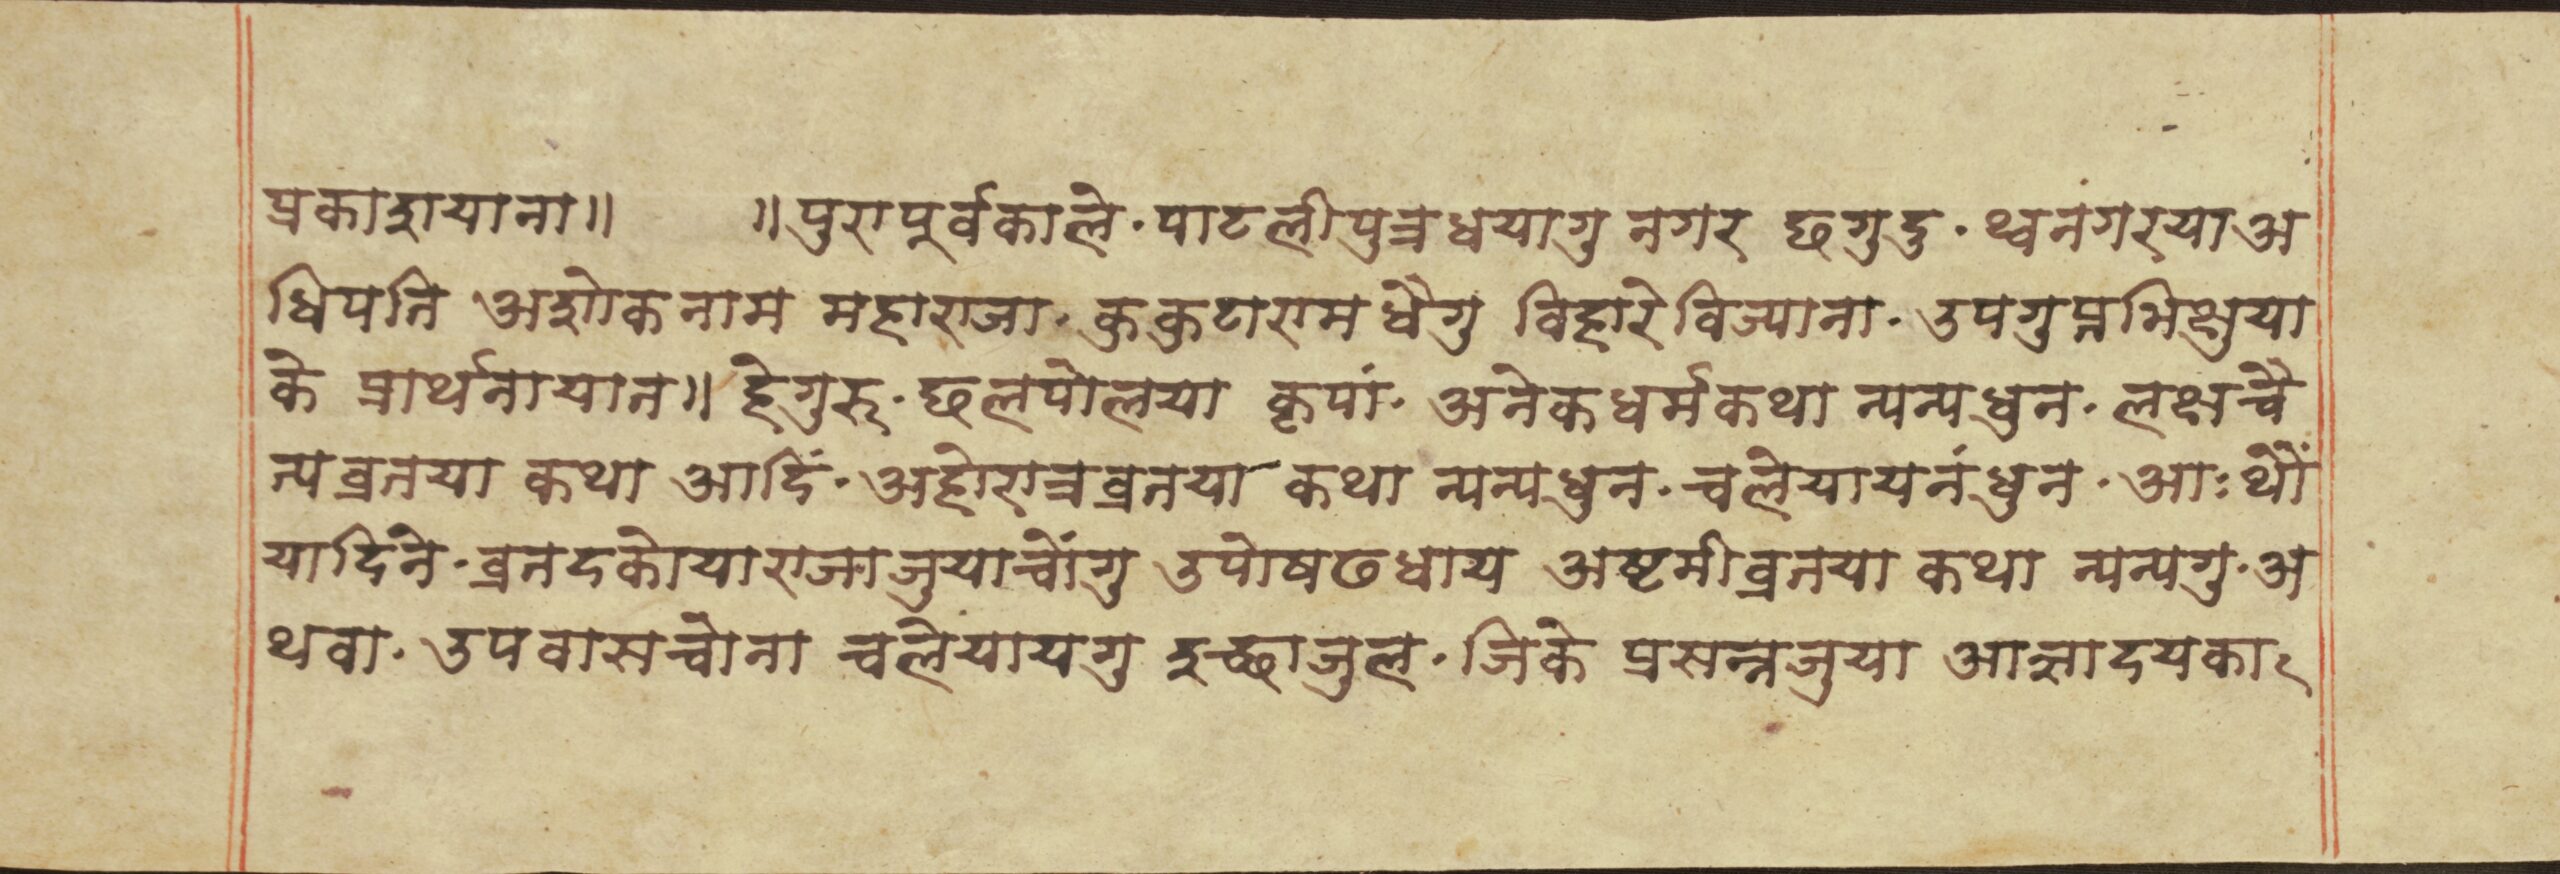 प्रकाशयाना॥ ॥पुरापूर्वकाले·पाटलीपुत्रधयागु नगर छगुदु·थ्वनंगरया अ
धिपति अशोकनाम महाराजा·कुकुटाराम धैगु विहारे विज्याना·उपगुप्तभिक्षुया
के प्रार्थनायान॥ हेगुरु·छलपोलया कृपां·अनेकधर्मकथा न्यन्यधुन·लक्षचै
त्यव्रतया कथा आदिं·अहोरात्रव्रतया कथा न्यन्यधुन·चलेयायनंधुन·आः थौं
यादिने·व्रतदकोयाराजाजुयाचोंगु उपोषढधाय अष्टमीव्रतया कथा न्यन्यगु·अ
थवा·उपवासचोना चलेयायगु इच्छाजुल·जिके प्रसन्नजुया आज्ञादयकाः